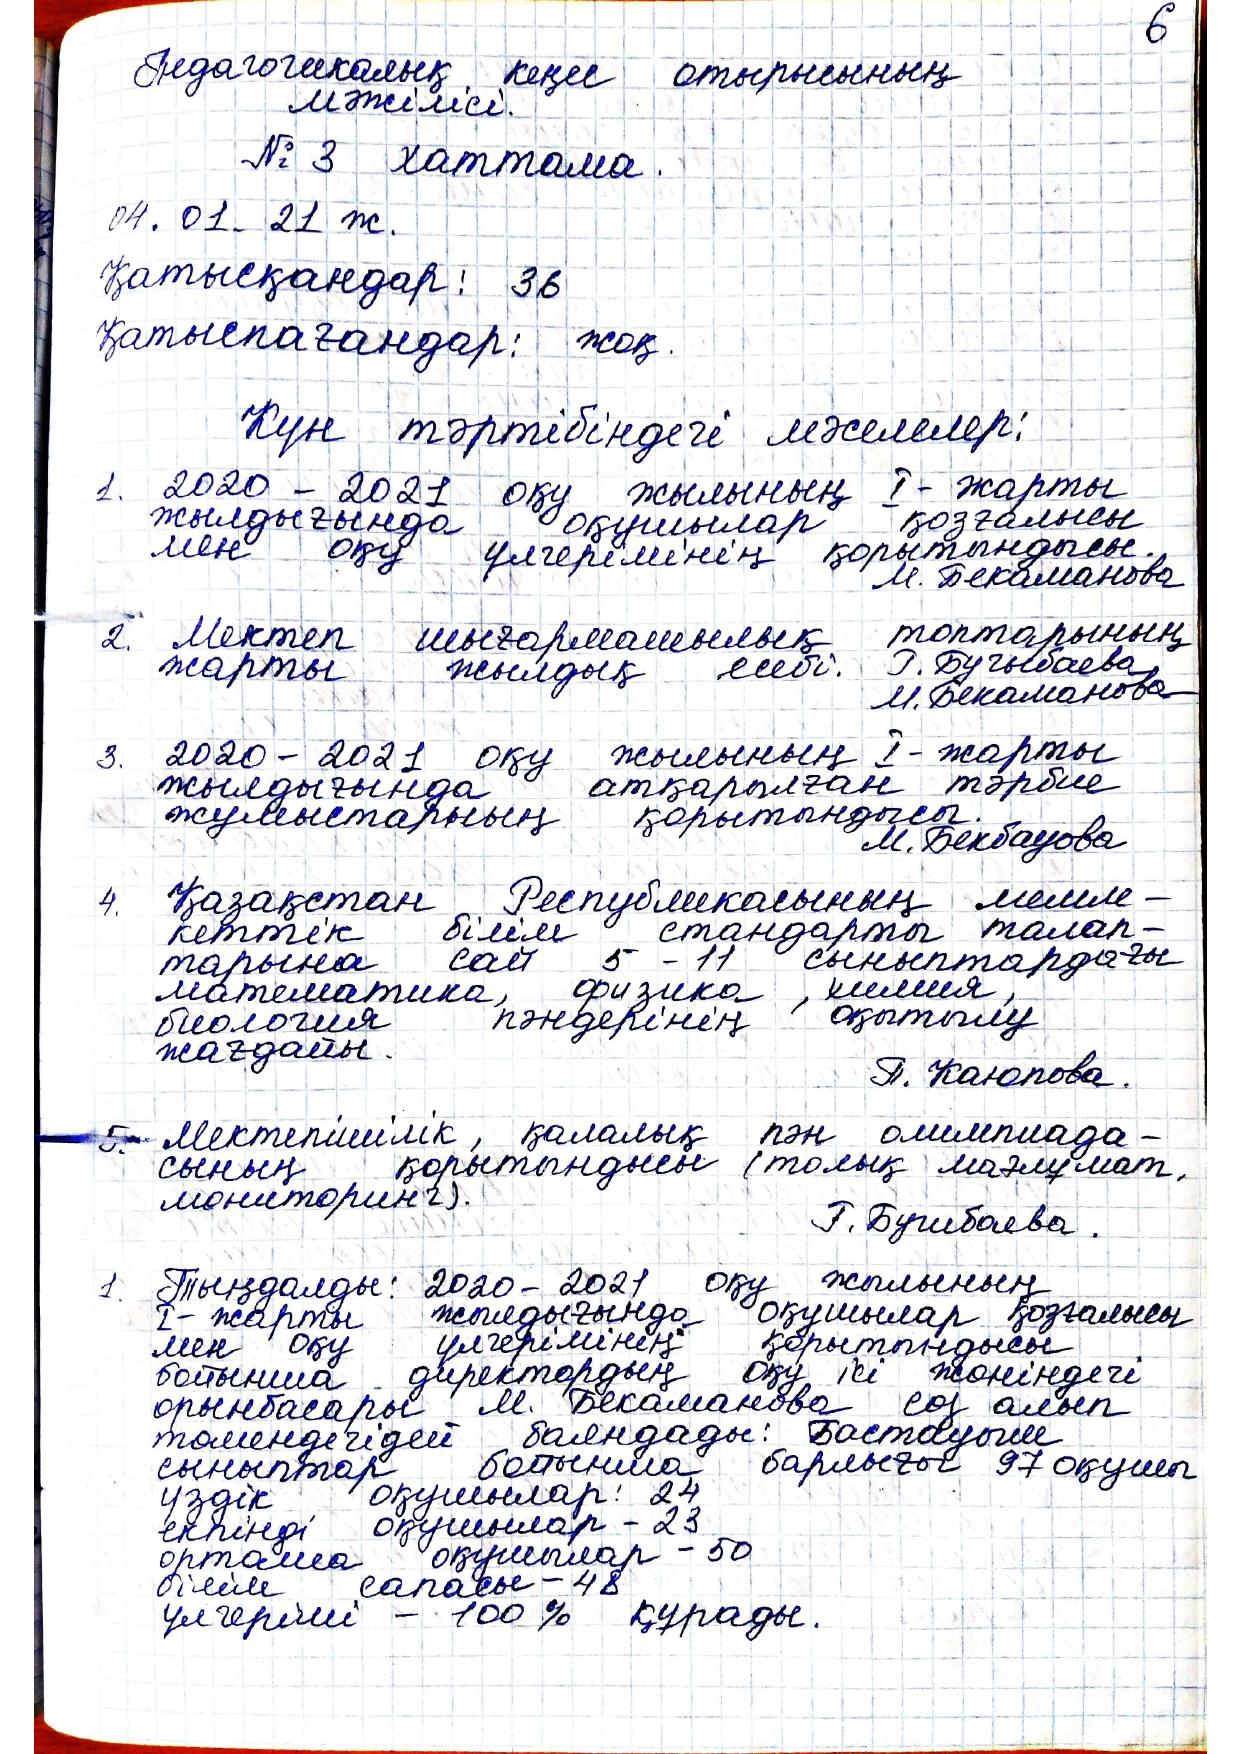 6
Педагогикалық кеңес отырысының
мәжілісі.
№ 3 хаттама.
04. 01. 21 ж.
Қатысқандар: 36
Қатыспағандар: жоқ.
Күн тәртібіндегі мәселелер:
1. 2020 - 2021 оқу жылының I - жарты
жылдығында оқушылар қозғалысы
мен оқу үлгерімінің қорытындысы.
М. Бекаманова
2. Мектеп шығармашылық топтарының
жарты жылдық есебі. Г. Бугыбаева
М. Бекаманова
3. 2020 - 2021 оқу жылының I - жарты
жылдығында атқарылған тәрбие
жұмыстарының қорытындысы.
М. Бекбауова
4. Қазақстан Республикасының мемле-
кеттік білім стандарты талап-
тарына сай 5 - 11 сыныптардағы
математика, физика, химия,
биология пәндерінің оқытылу
жағдайы.
П. Каюпова.
5. Мектепішілік, қалалық пән олимпиада-
сының қорытындысы (толық мағлұмат,
мониторинг).
Г. Бугибаева.
1. Тыңдалды: 2020 - 2021 оқу жылының
I - жарты жылдығында оқушылар қозғалысы
мен оқу үлгерімінің қорытындысы
бойынша директордың оқу ісі жөніндегі
орынбасары М. Бекаманова сөз алып
төмендегідей баяндады: Бастауыш
сыныптар бойынша барлығы 97 оқушы
үздік оқушылар: 24
екпінді оқушылар - 23
орташа оқушылар - 50
білім сапасы - 48
үлгерімі - 100 % құрады.